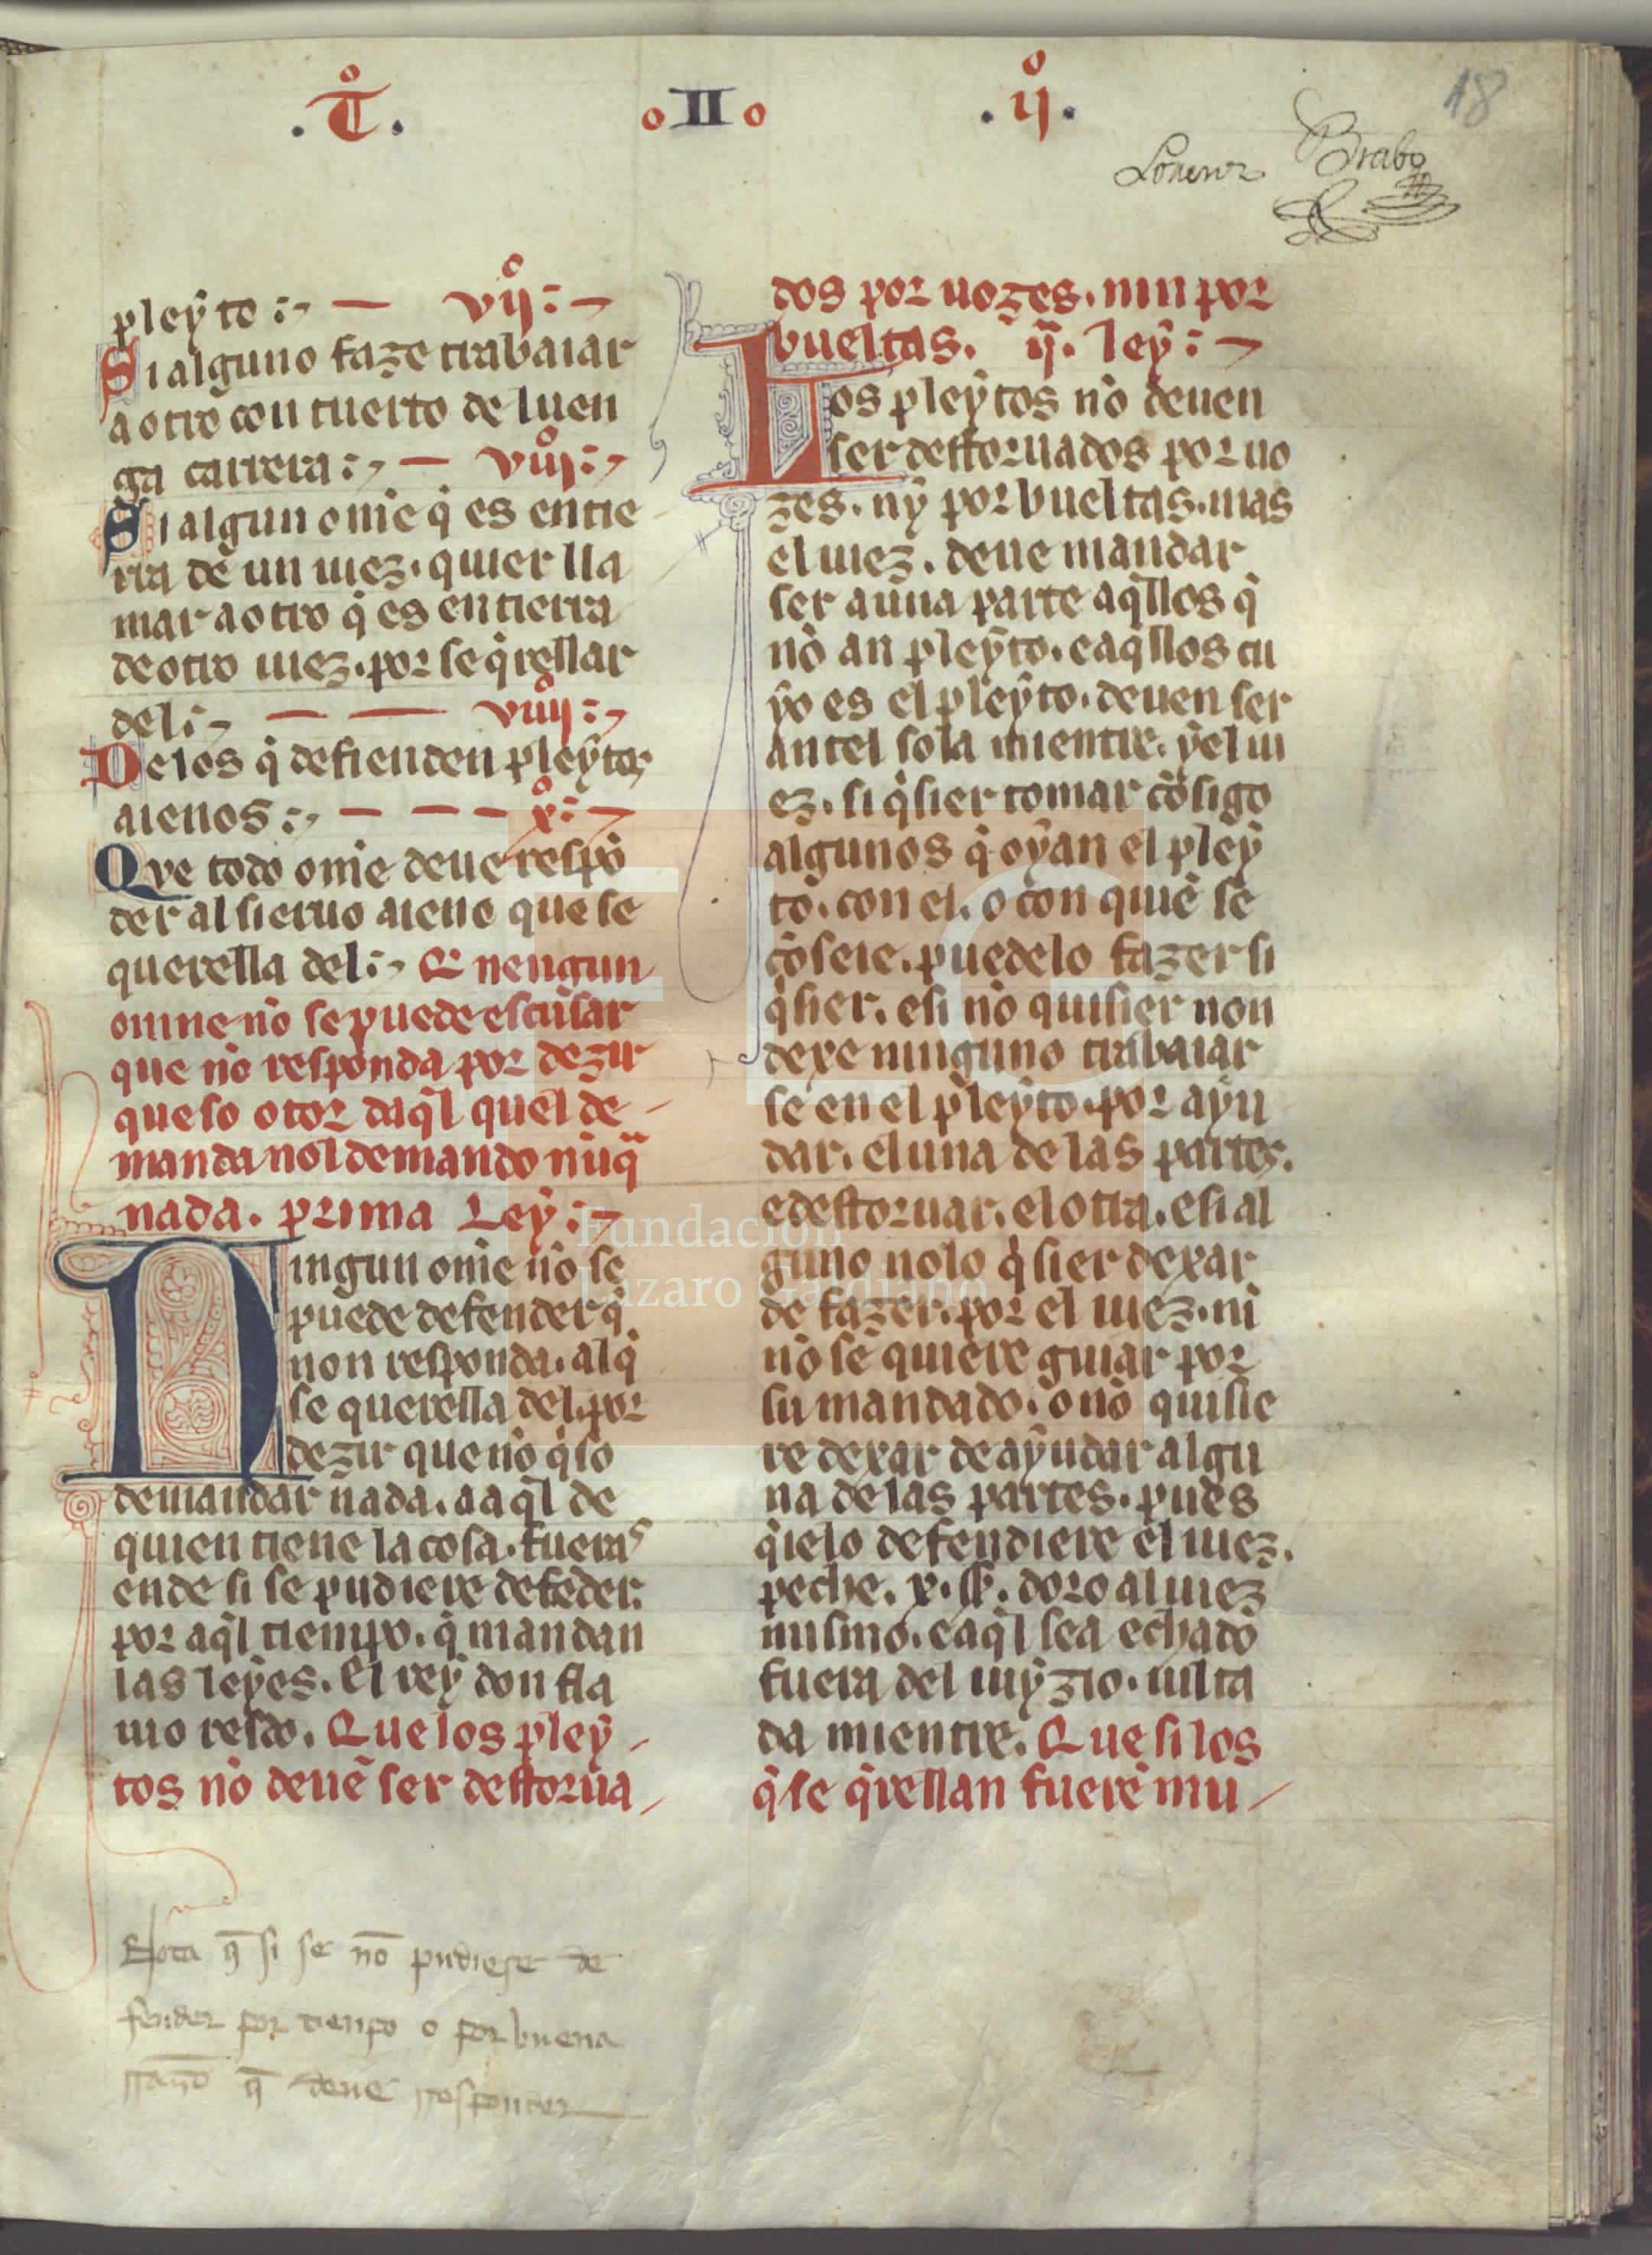 .Tº. II .ijº.
18
Lorenz Brabo
pleyto :~ — vijº :~
Si alguno faze trabaiar
a otro con tuerto de luen
ga carrera :~ — viijº :~
Si algun om̃e q̇ es en tie
rra de un iuez. quier lla
mar a otro q̇ es en tierra
de otro iuez. por se q̇rellar
del :~ — — viiijº :~
Delos q̇ defienden pleytos
aienos :~ — — — xº :~
Qve todo om̃e deue respõ
der al sieruo aieno que se
querella del :~ Q nengun
omne nõ se puede escusar
que nõ responda por dezir
que so otor daq̃l quel de
manda nol demando nũq̃
nada. prima Ley :~
Ningun om̃e nõ se
puede defender q̇
non responda. al q̇
se querella del. por
dezir que nõ q̇so
demandar nada. a aq̃l de
quien tiene la cosa. fueras
ende si se pudiere defeder.
por aq̃l tiempo. q̇ mandan
las leyes. El rey don fla
uio resdo. Que los pley
tos nõ deuẽ ser destorua
dos por uozes. nin por
bueltas. ij. ley :~
Los pleytos nõ deuen
ser destoruados por uo
zes. nȳ por bueltas. mas
el iuez. deue mandar
ser a una parte aq̃llos q̇
nõ an pleyto. e aq̃llos cu
yo es el pleyto. deuen ser
antel sola mientre. y el iu
ez. si q̇sier tomar cõsigo
algunos q̇ oyan el pley
to. con el. o con quiẽ se
cõseie. puedelo fazer si
q̇sier. e si nõ quisier non
dexe ninguno trabaiar
se en el pleyto. por ayu
dar. el una de las partes.
e destoruar. el otra. e si al
guno nolo q̇sier dexar
de fazer. por el iuez. nĩ
nõ se quiere guiar por
su mandado. o nõ quisie
re dexar de ayudar algu
na de las partes. pues
q̇ ielo defendiere el iuez.
peche. x. ss̃. doro al iuez
mismo. e aq̃l sea echado
fuera del iuyzio. uilta
da mientre. Que si los
q̇ se q̇rellan fuerẽ mu
Nota q̃ si se nõ pudiese de
fender por tienpo o por buena
rrazõ q̃ deue rresponder
Fundación
Lázaro Galdiano